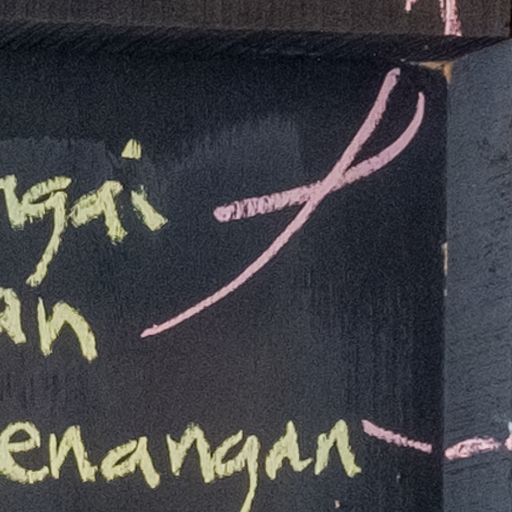 ngai
an
enangan